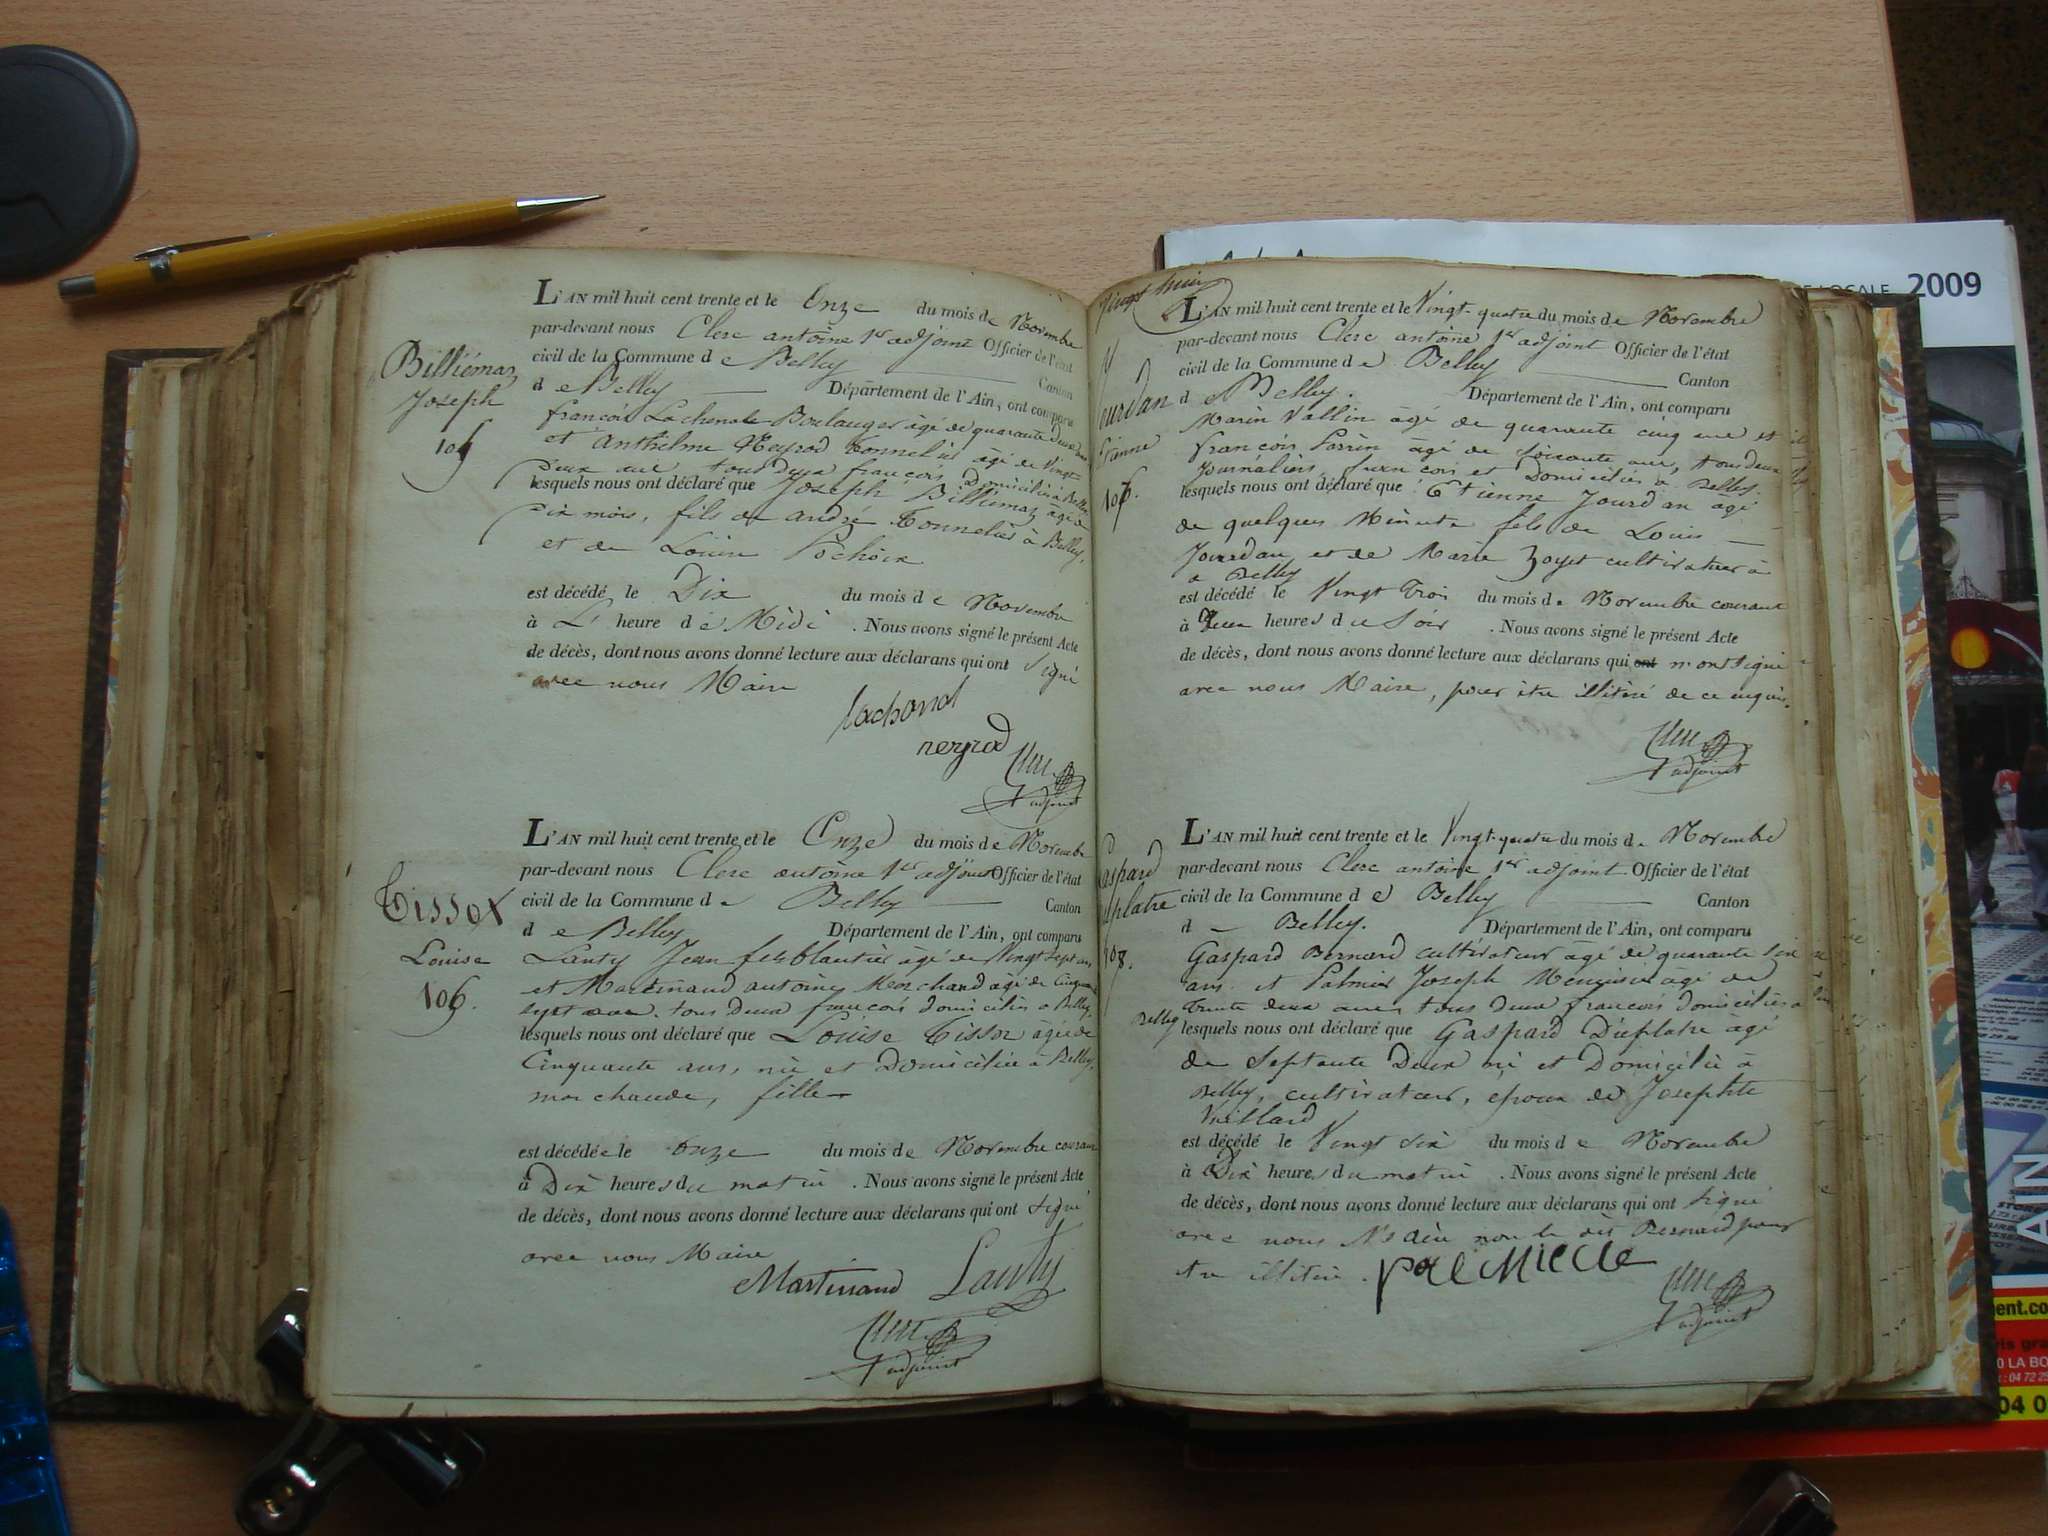 L'AN mil huit cent trente et le Onze du mois de Novembre
par-devant nous Clerc antoine 1er adjoint Officier de l'état
civil de la Commune de Belley Canton
de Belley Département de l'Ain, ont comparu
françois Lachenal Boulanger âgé de quarante deux ans
et Anthelme Neyrod Tonnelier âgé de Vingt
deux ans tous deux françois Domiciliés à Belley
lesquels nous ont déclaré que Joseph Billiémaz âgé de
dix mois, fils de andré Tonnelier à Belley,
et de Louise
est décédé le Dix du mois de Novembre
à L' heure de Midi . Nous avons signé le présent Acte
de décès, dont nous avons donné lecture aux déclarans qui ont Signé
avec nous Maire
neyrod
adjoint
Billiémaz
Joseph
L'AN mil huit cent trente et le Onze du mois de Novembre
par-devant nous Clerc antoine 1er adjoint Officier de l'état
civil de la Commune de Belley Canton
de Belley Département de l'Ain, ont comparu
Lauty Jean ferblantier âgé de Vingt sept ans
et Martinand antoine Marchand âgé de Cinquante
sept ans. tous deux françois domiciliés à Belley.
lesquels nous ont déclaré que Louise Tissot âgée de
Cinquante ans, née et Domiciliée à Belley,
marchande, fille
est décédée le onze du mois de Novembre courant
à Dix heures du matin . Nous avons signé le présent Acte
de décès, dont nous avons donné lecture aux déclarans qui ont signé
avec nous Maire
Martinand Lauty
adjoint
Tissot
Louise
106.
Vingt huit
L'AN mil huit cent trente et le Vingt-quatre du mois de Novembre
par-devant nous Clerc antoine 1er adjoint Officier de l'état
civil de la Commune de Belley Canton
de Belley. Département de l'Ain, ont comparu
Marin Vallin âgé de quarante cinq ans et
françois Perrin âgé de soixante ans, tous deux
Journaliers, francois et Domiciliés à Belley.
lesquels nous ont déclaré que Etienne Jourdan âgé
de quelques Minutes fils de Louis
Jourdan, et de Marie cultivateur à
à Belley
est décédé le Vingt Trois du mois de Novembre courant
à heures du Soir . Nous avons signé le présent Acte
de décès, dont nous avons donné lecture aux déclarans qui ont n'ont signé
avec nous Maire, pour être illitéré de ce enquis.
adjoint
L'AN mil huit cent trente et le Vingt-quatre du mois de Novembre
par-devant nous Clerc antoine 1er adjoint Officier de l'état
civil de la Commune de Belley Canton
d Belley. Département de l'Ain, ont comparu
Gaspard Bernard cultivateur âgé de quarante six
ans et Palmier Joseph Menuisier âgé de
trente deux ans tous deux francois domiciliés à
Belley lesquels nous ont déclaré que Gaspard Dieplatre âgé
de Septante Deux né et Domicilié à
Belley, cultivateur, epoux de Josephte
Vuillard
est décédé le Vingt six du mois de Novembre
à Dix heures du matin . Nous avons signé le présent Acte
de décès, dont nous avons donné lecture aux déclarans qui ont signé
avec nous Maire non le dit Bernard pour
être illitéré.
adjoint
Gaspard
108.
2009
LOCALE
AIN
ent.co
0 LA BO
04 72 25
04 0